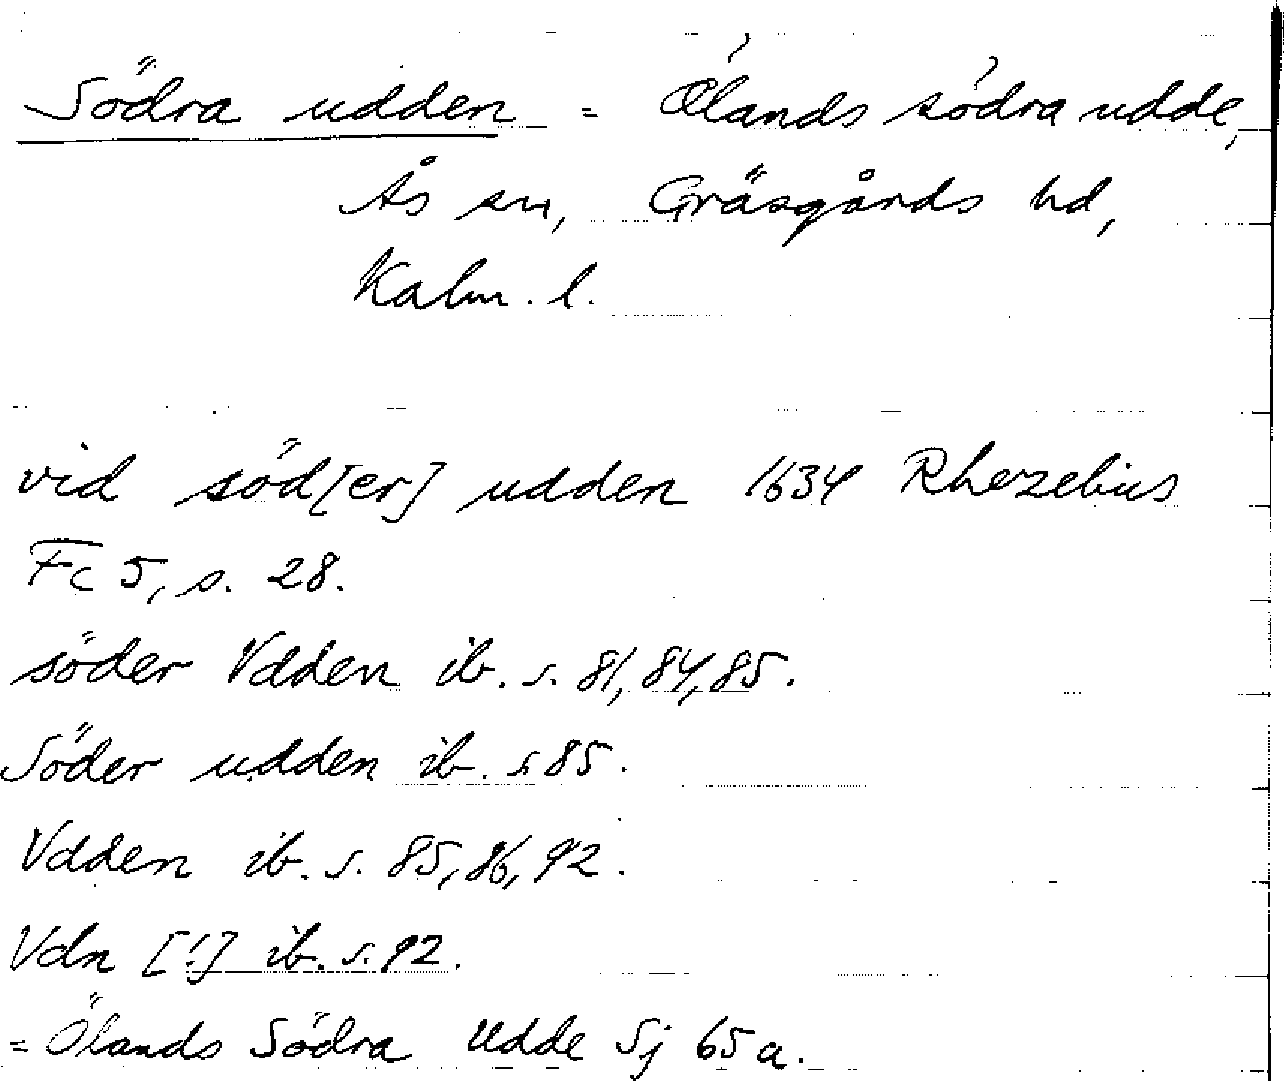 Södra udden = Ölands södra udde,
Ås sn, Gräsgårds hd,
Kalm. l.
vid söd[er] udden 1634 Rhezelius
Fc 5, s. 28.
söder Vdden ib. s. 81, 84, 85.
Söder udden ib. s 85.
Vdden ib. s. 85, 86, 92.
Vdn [!] ib. s. 92.
= Ölands Södra Udde Sj 65 a.